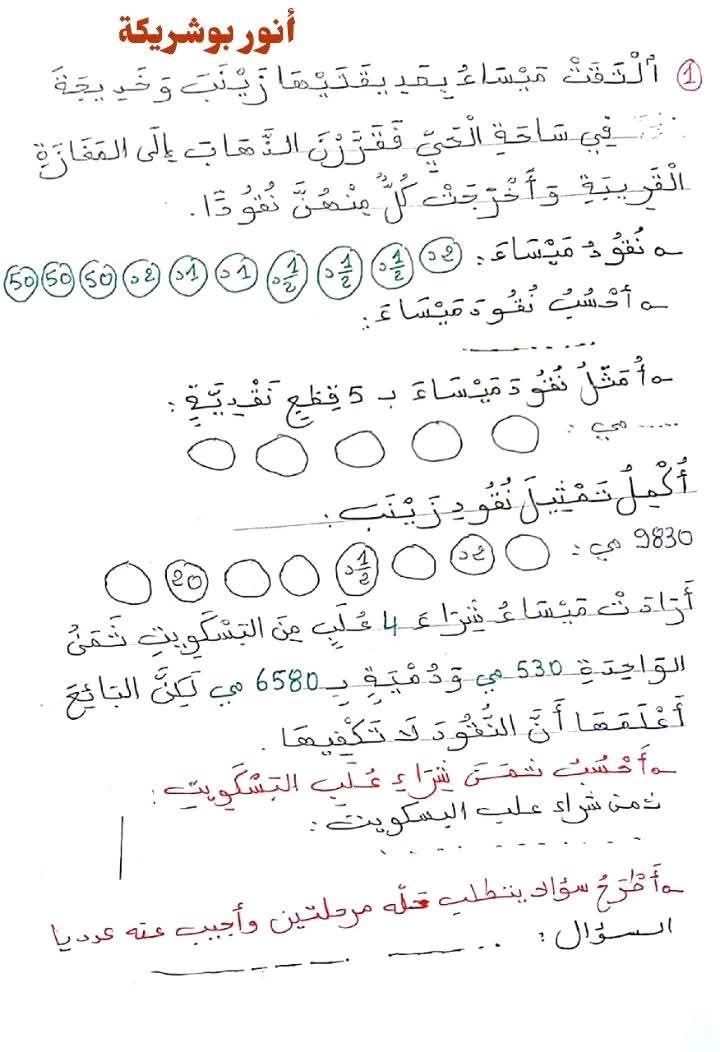 أنور بوشريكة
1 اُلْتَقَتْ مَيْسَاءُ بِصَدِيقَتَيْهَا زَيْنَبَ وَ خَدِيجَةَ
فِي سَاحَةِ الْحَيِّ فَقَرَّرْنَ الذَّهَابَ إِلَى المَغَازَةِ
الْقَرِيبَةِ وَ أَخْرَجَتْ كُلٌّ مِنْهُنَّ نُقُودًا.
نُقُودُ مَيْسَاءَ: 2د 1/2د 1/2د 1/2د 1د 1د 2د 50 50 50
أَحْسُبُ نُقُودَ مَيْسَاءَ:
..........
أُمَثِّلُ نُقُودَ مَيْسَاءَ بـ 5 قِطَعٍ نَقْدِيَّةٍ:
..... مي:
أُكْمِلُ تَمْثِيلَ نُقُودِ زَيْنَب:
9830 مي: 2د 1/2د 20
أَرَادَتْ مَيْسَاءُ شِرَاءَ 4 عُلَبٍ مِنَ البَسْكَوِيتِ ثَمَنُ
الوَاحِدَةِ 530 مي وَ دُمْيَةٍ بِـ 6580 مي لَكِنَّ البَائِعَ
أَعْلَمَهَا أَنَّ النُّقُودَ لَا تَكْفِيهَا.
أَحْسُبُ ثَمَنَ شِرَاءِ عُلَبِ البَسْكَوِيتِ:
ثمن شراء علب البسكويت:
..........
أَطْرَحُ سؤالا يتطلب حلّه مرحلتين وأجيب عنه عدديا
السؤال: ..........